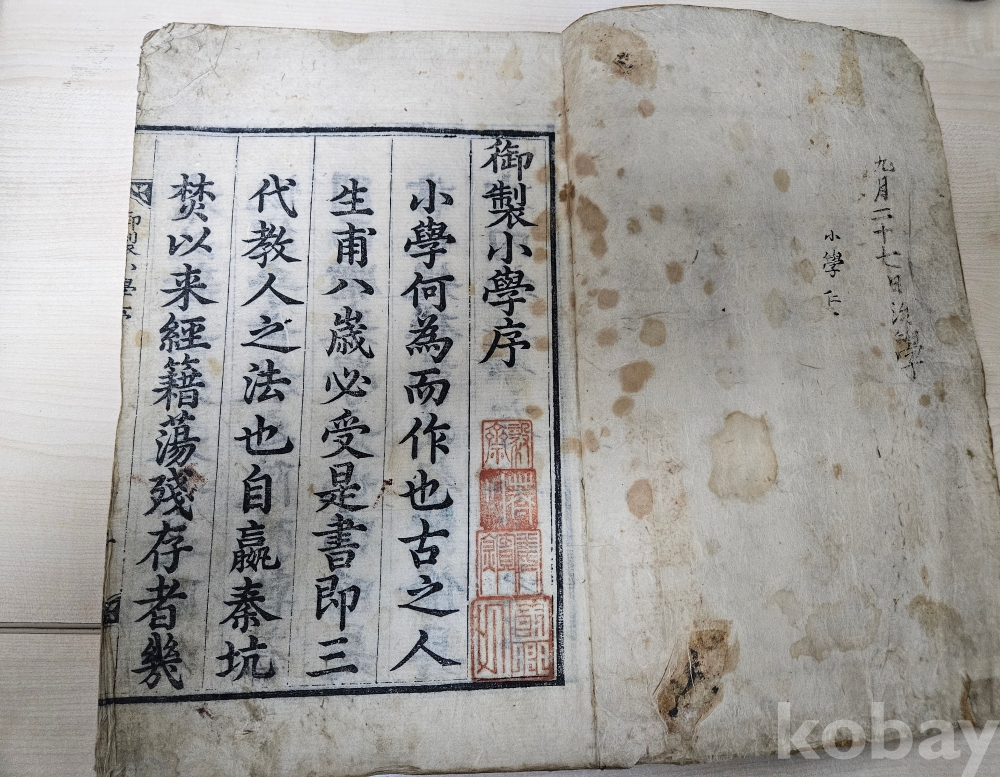 九月二十七日
學
小學
御製小學序
小學何為而作也古之人
生甫八歲必受是書即三
代教人之法也自嬴秦坑
焚以来經籍蕩殘存者幾
御製小學序
kobay